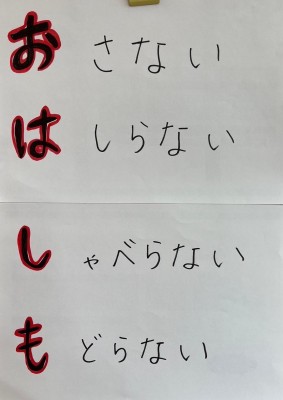 おさない
はしらない
しゃべらない
もどらない